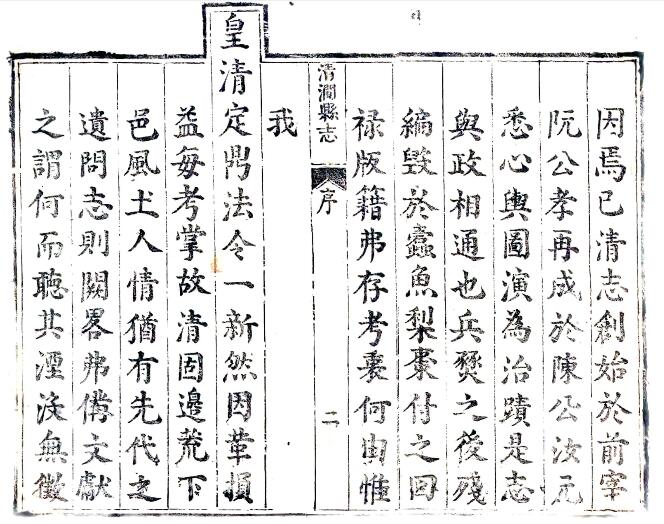 因焉已清志創始於前宰
阮公孝再成於陳公汝元
悉心輿圖演為治蹟是志
與政相通也兵燹之後殘
編毀於蠧魚梨棗付之回
祿版籍弗存考衷何由惟
清澗縣志
序
二
我
皇清定鼎法令一新然因革損
益每考掌故清固邊荒下
邑風土人情猶有先代之
遺問志則闕畧弗備文獻
之謂何而聽其湮沒無徵